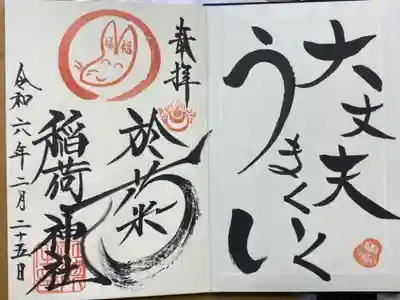 奉拝
於菊
稲荷神社
令和六年二月二十五日
大丈夫
うまくいくし